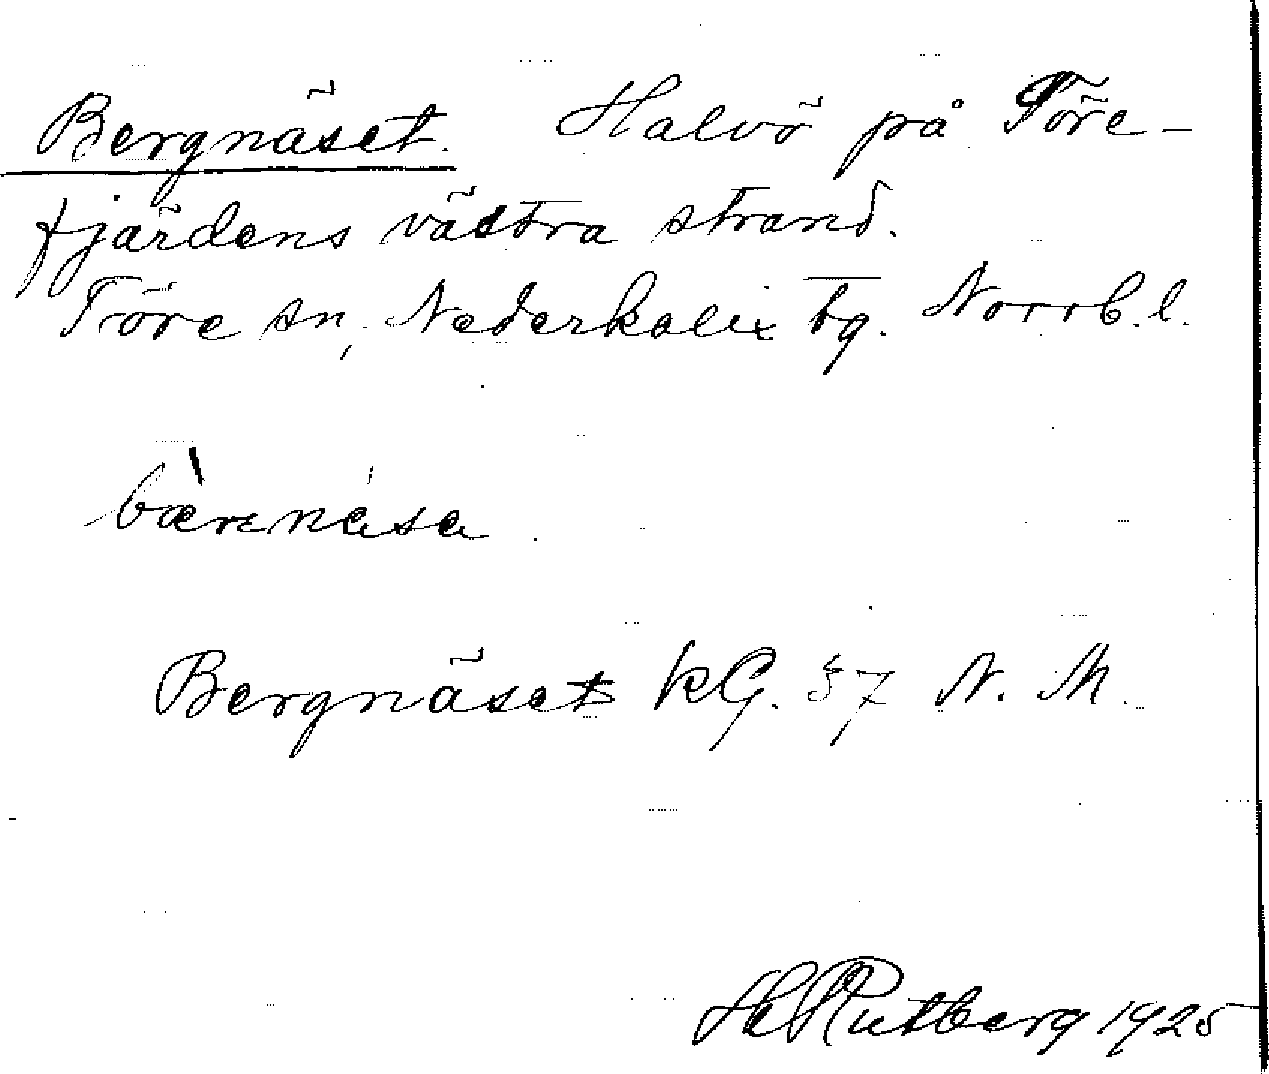 Bergnäset. Halvö på Töre-
fjärdens västra strand.
Töre sn, Nederkalix tg. Norrb. l.
bærnäsa
Bergnäset kG. 57 N. M.
Hj. Rutberg 1925